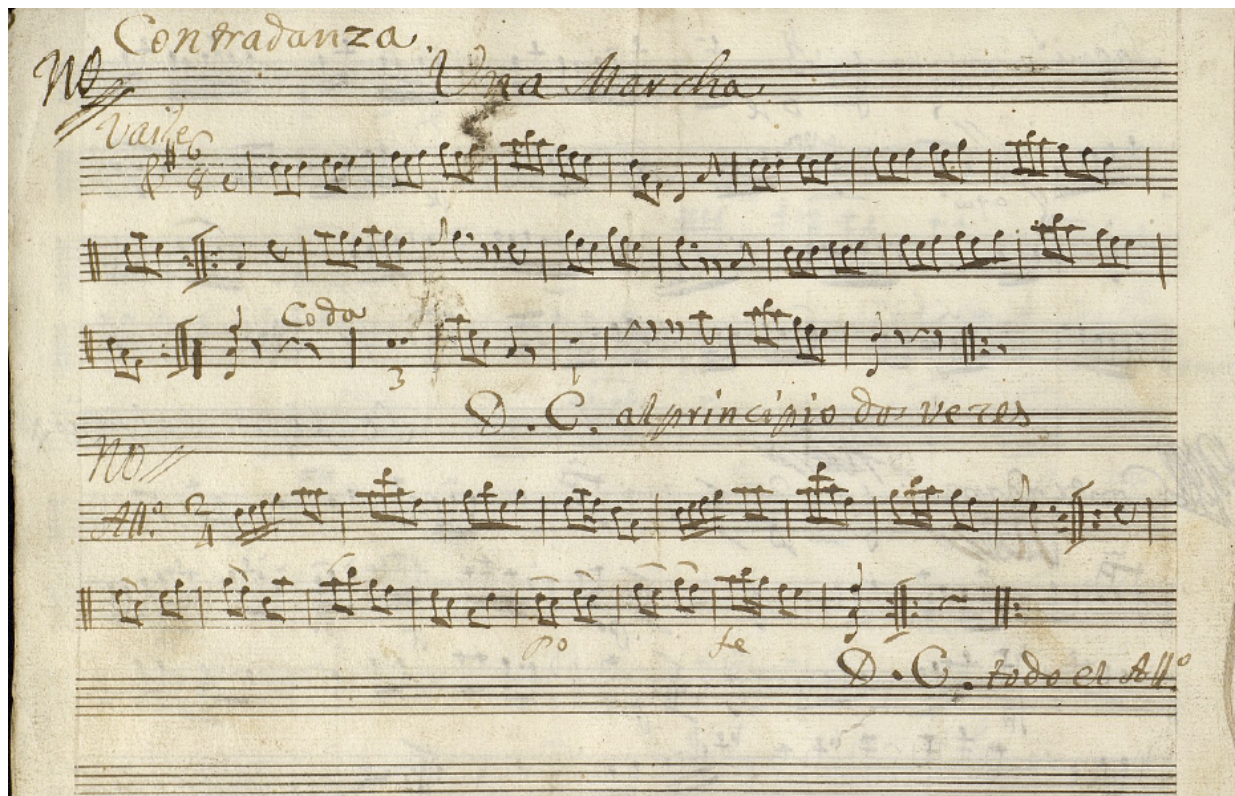 Contradanza.
No
Una Marcha
Vaile
6
8
Coda
3
1
D. C. al principio dos vezes
No
All.º 2
4
po fe
D. C. todo el All.º